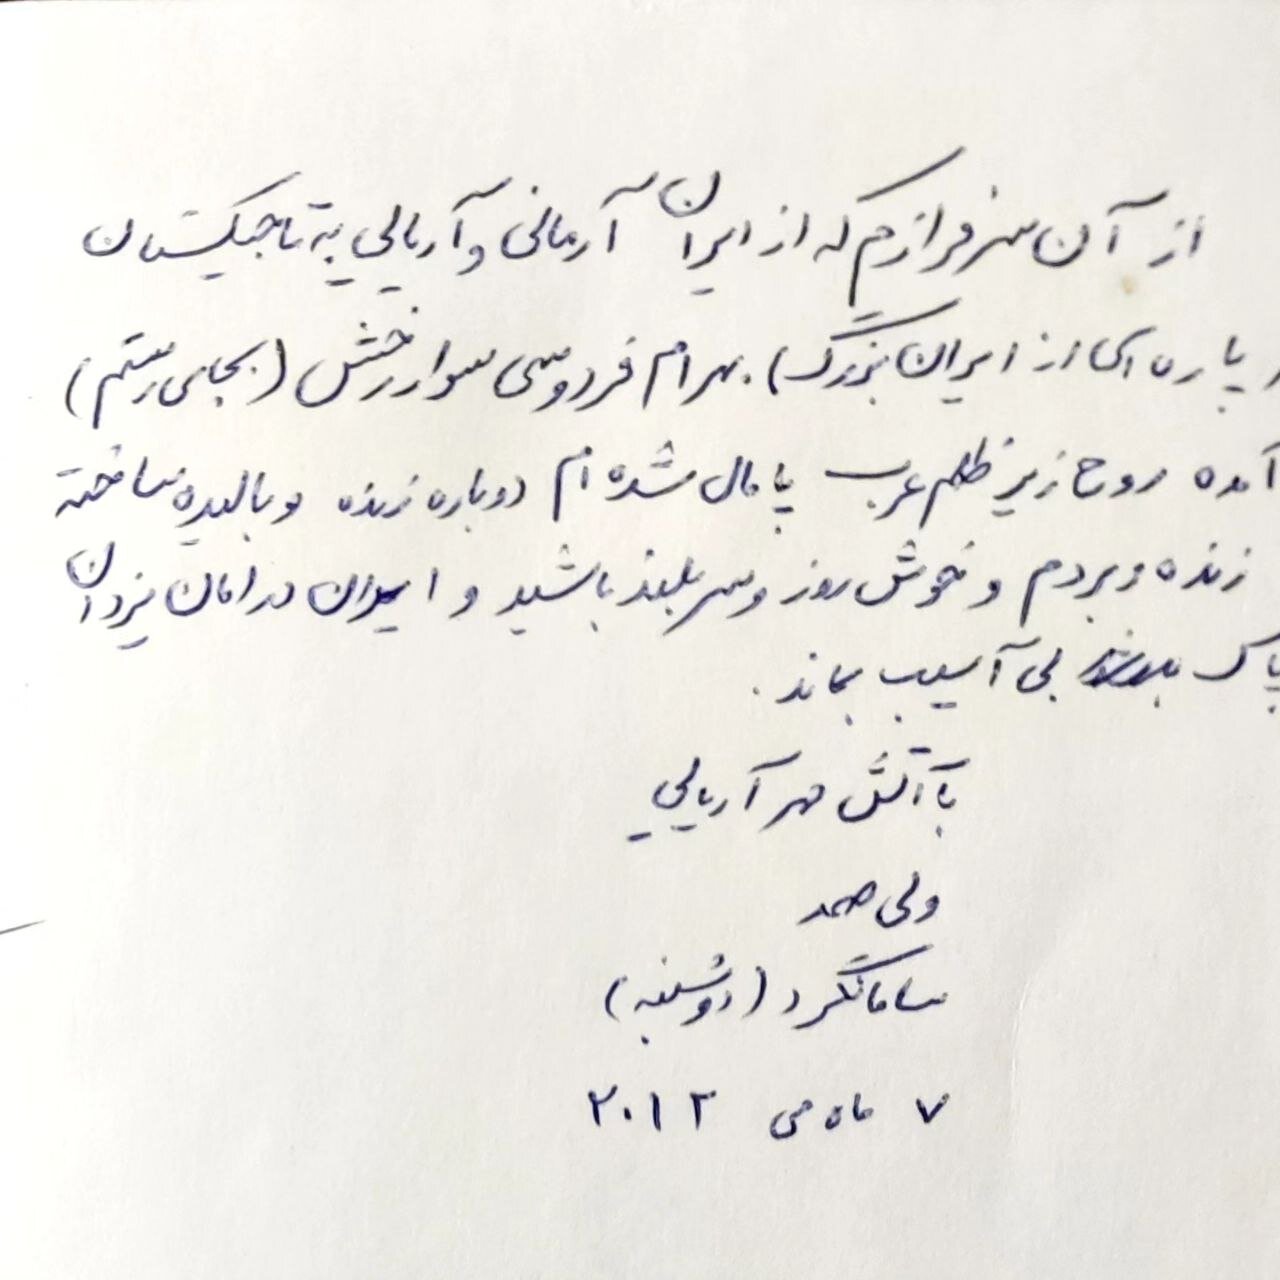 از آن سرفرازم که از ایران آرمانی و آریایی به تاجیکستان
(پاره ای از ایران بزرگ) بهرام فردوسی سوار رخش (بجای رستم)
آمده روح زیر ظلم عرب پامال شده ام دوباره زنده و بالیده ساخته
زنده و بردم و خوش روز و سربلند باشید و ایران در امان یزدان
پاک بی آسیب بماند.
با آتش مهر آریایی
ولی صمد
سامانگرد (دوشنبه)
۷ ماه می ۲۰۱۲